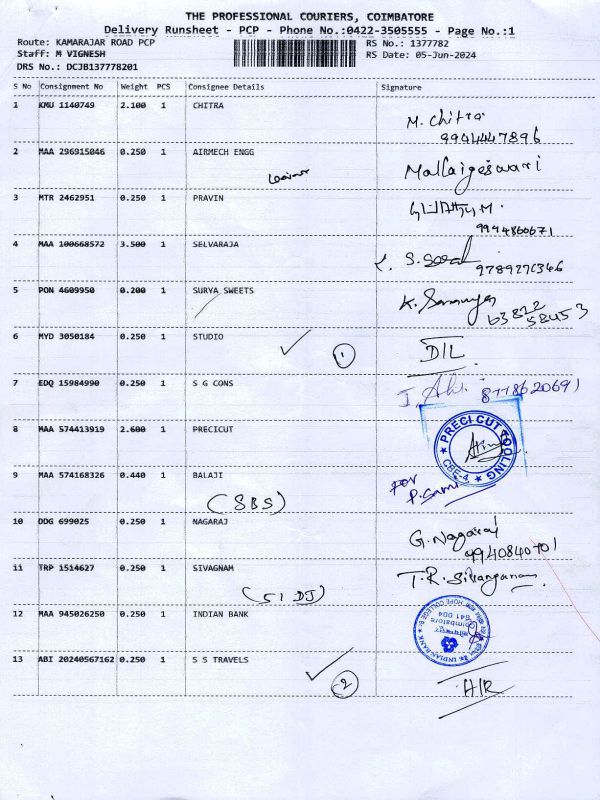 THE PROFESSIONAL COURIERS, COIMBATORE
Delivery Runsheet - PCP - Phone No.:0422-3505555 - Page No.:1
Route: KAMARAJAR ROAD PCP RS No.: 1377782
Staff: M VIGNESH RS Date: 05-Jun-2024
DRS No.: DCJB137778201
S No Consignment No Weight PCS Consignee Details Signature
1 KMU 1140749 2.100 1 CHITRA
M. Chitra
9994447896
2 MAA 296915046 0.250 1 AIRMECH ENGG
Mallaigeswari
3 MTR 2462951 0.250 1 PRAVIN
9994860671
4 MAA 100668572 3.500 1 SELVARAJA
9789276346
5 PON 4609950 0.200 1 SURYA SWEETS
K.
63822
58453
6 MYD 3050184 0.250 1 STUDIO 1 D/L
7 EDQ 15984990 0.250 1 S G CONS
8778620691
8 MAA 574413919 2.600 1 PRECICUT
PRECI CUT TOOLING
CBE-4
9 MAA 574168326 0.440 1 BALAJI
(SBS)
for
P. Sami
10 DDG 699025 0.250 1 NAGARAJ
G. Nagaraj
9940840701
11 TRP 1514627 0.250 1 SIVAGNAM
T.R. Sivanganam
(51 DJ)
12 MAA 945026250 0.250 1 INDIAN BANK
INDIAN BANK
HOPE COLLEGE
Coimbatore
641 004
13 ABI 20240567162 0.250 1 S S TRAVELS
2 A/R